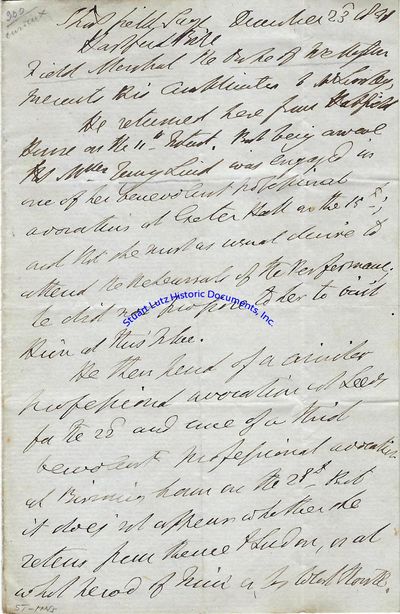 200
Strathfield Saye December 23 1848
Hartford Bridge
Field Marshal The Duke of Wellington
presents His Compliments to
He returned here from Hatfield
House on the 11th Instant. But being aware
that Miss Jenny Lind was engaged in
one of her benevolent professional
avocations at Exeter Hall on the 15th;
and that she must as usual desire to
attend the Rehearsals of the Performance
he did not propose to her to visit
Him at this place.
He then heard of a similar
professional avocation at Leeds
for the 23d and one of a third
benevolent professional avocation
at Birmingham on the 28th. But
it does not appear whether she
returns from thence to London, or at
what period of time or by what Route.
Stuart Lutz Historic Documents, Inc.